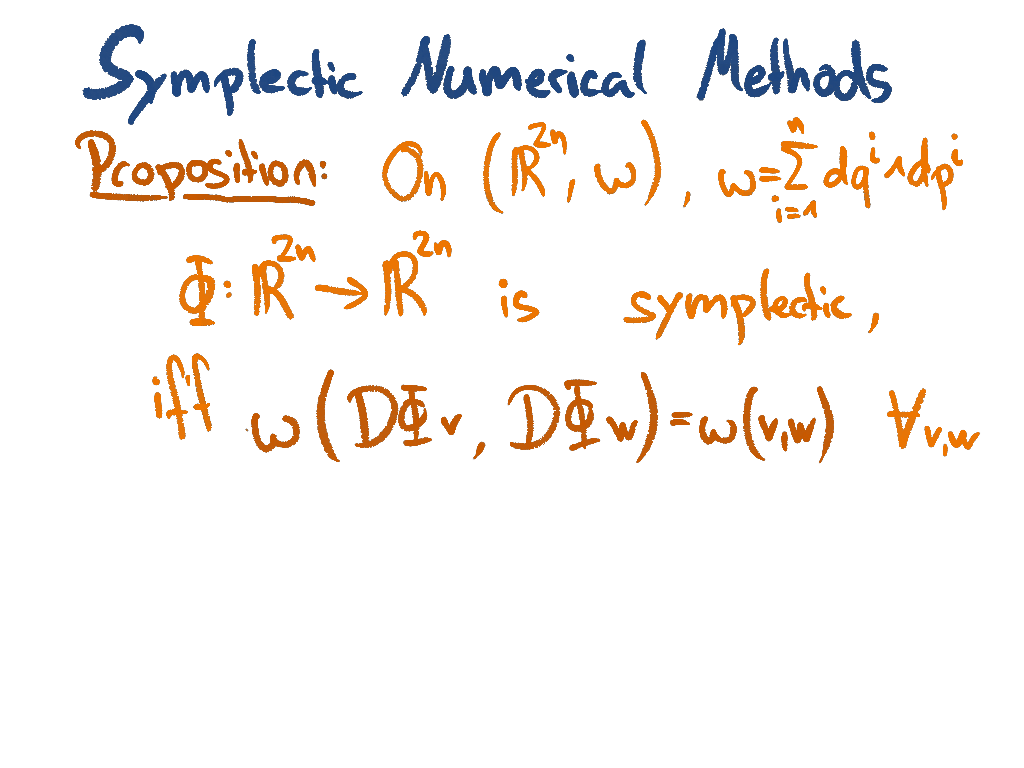 Symplectic Numerical Methods
Proposition: On (ℝ²ⁿ, ω), ω=∑ⁿᵢ₌₁ dqⁱ∧dpⁱ
Φ: ℝ²ⁿ → ℝ²ⁿ is symplectic,
iff ω(DΦv, DΦw)=ω(v,w) ∀v,w